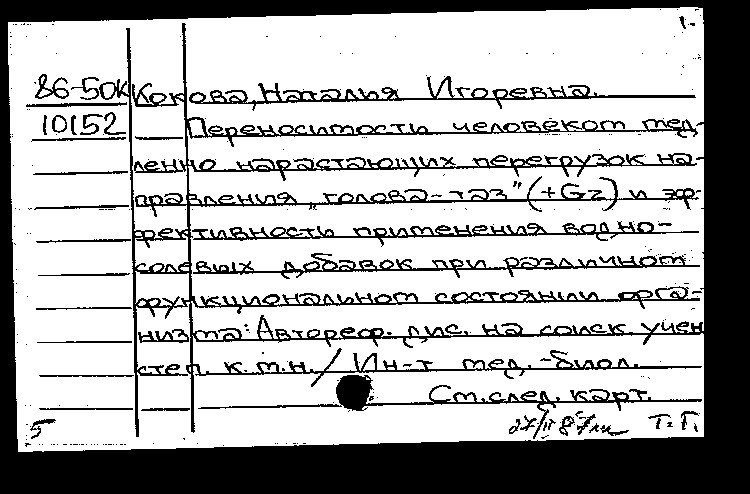 1.
86-50к Кокова, Наталия Игоревна.
10152 Переносимость человеком мед-
ленно нарастающих перегрузок на-
правления „голова-таз" (+Gz) и эф-
фективность применения водно-
солевых добавок при различном
функциональном состоянии орга-
низма: Автореф. дис. на соиск. учен
степ. к.м.н. / Ин-т мед.-биол.
Ст. след. карт.
5 Т.Г.